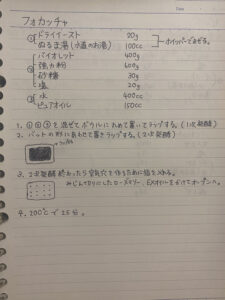 フォカッチャ
① ドライイースト 20g
ぬるま湯(水道のお湯) 100cc ホイッパーでまぜる。
② バイオレット 400g
強力粉 600g
砂糖 30g
塩 20g
③ 水 400cc
ピュアオイル 150cc
1. ①②③を混ぜてボウルに丸めて置いてラップする。(1次発酵)
2. バットの形にあわせて置きラップする。(2次発酵)
3. 2次発酵終わったら空気穴を作るために指を入れる。
みじん切りにしたローズマリー、EXオイルをかけてオーブンへ。
4. 200℃で25分。